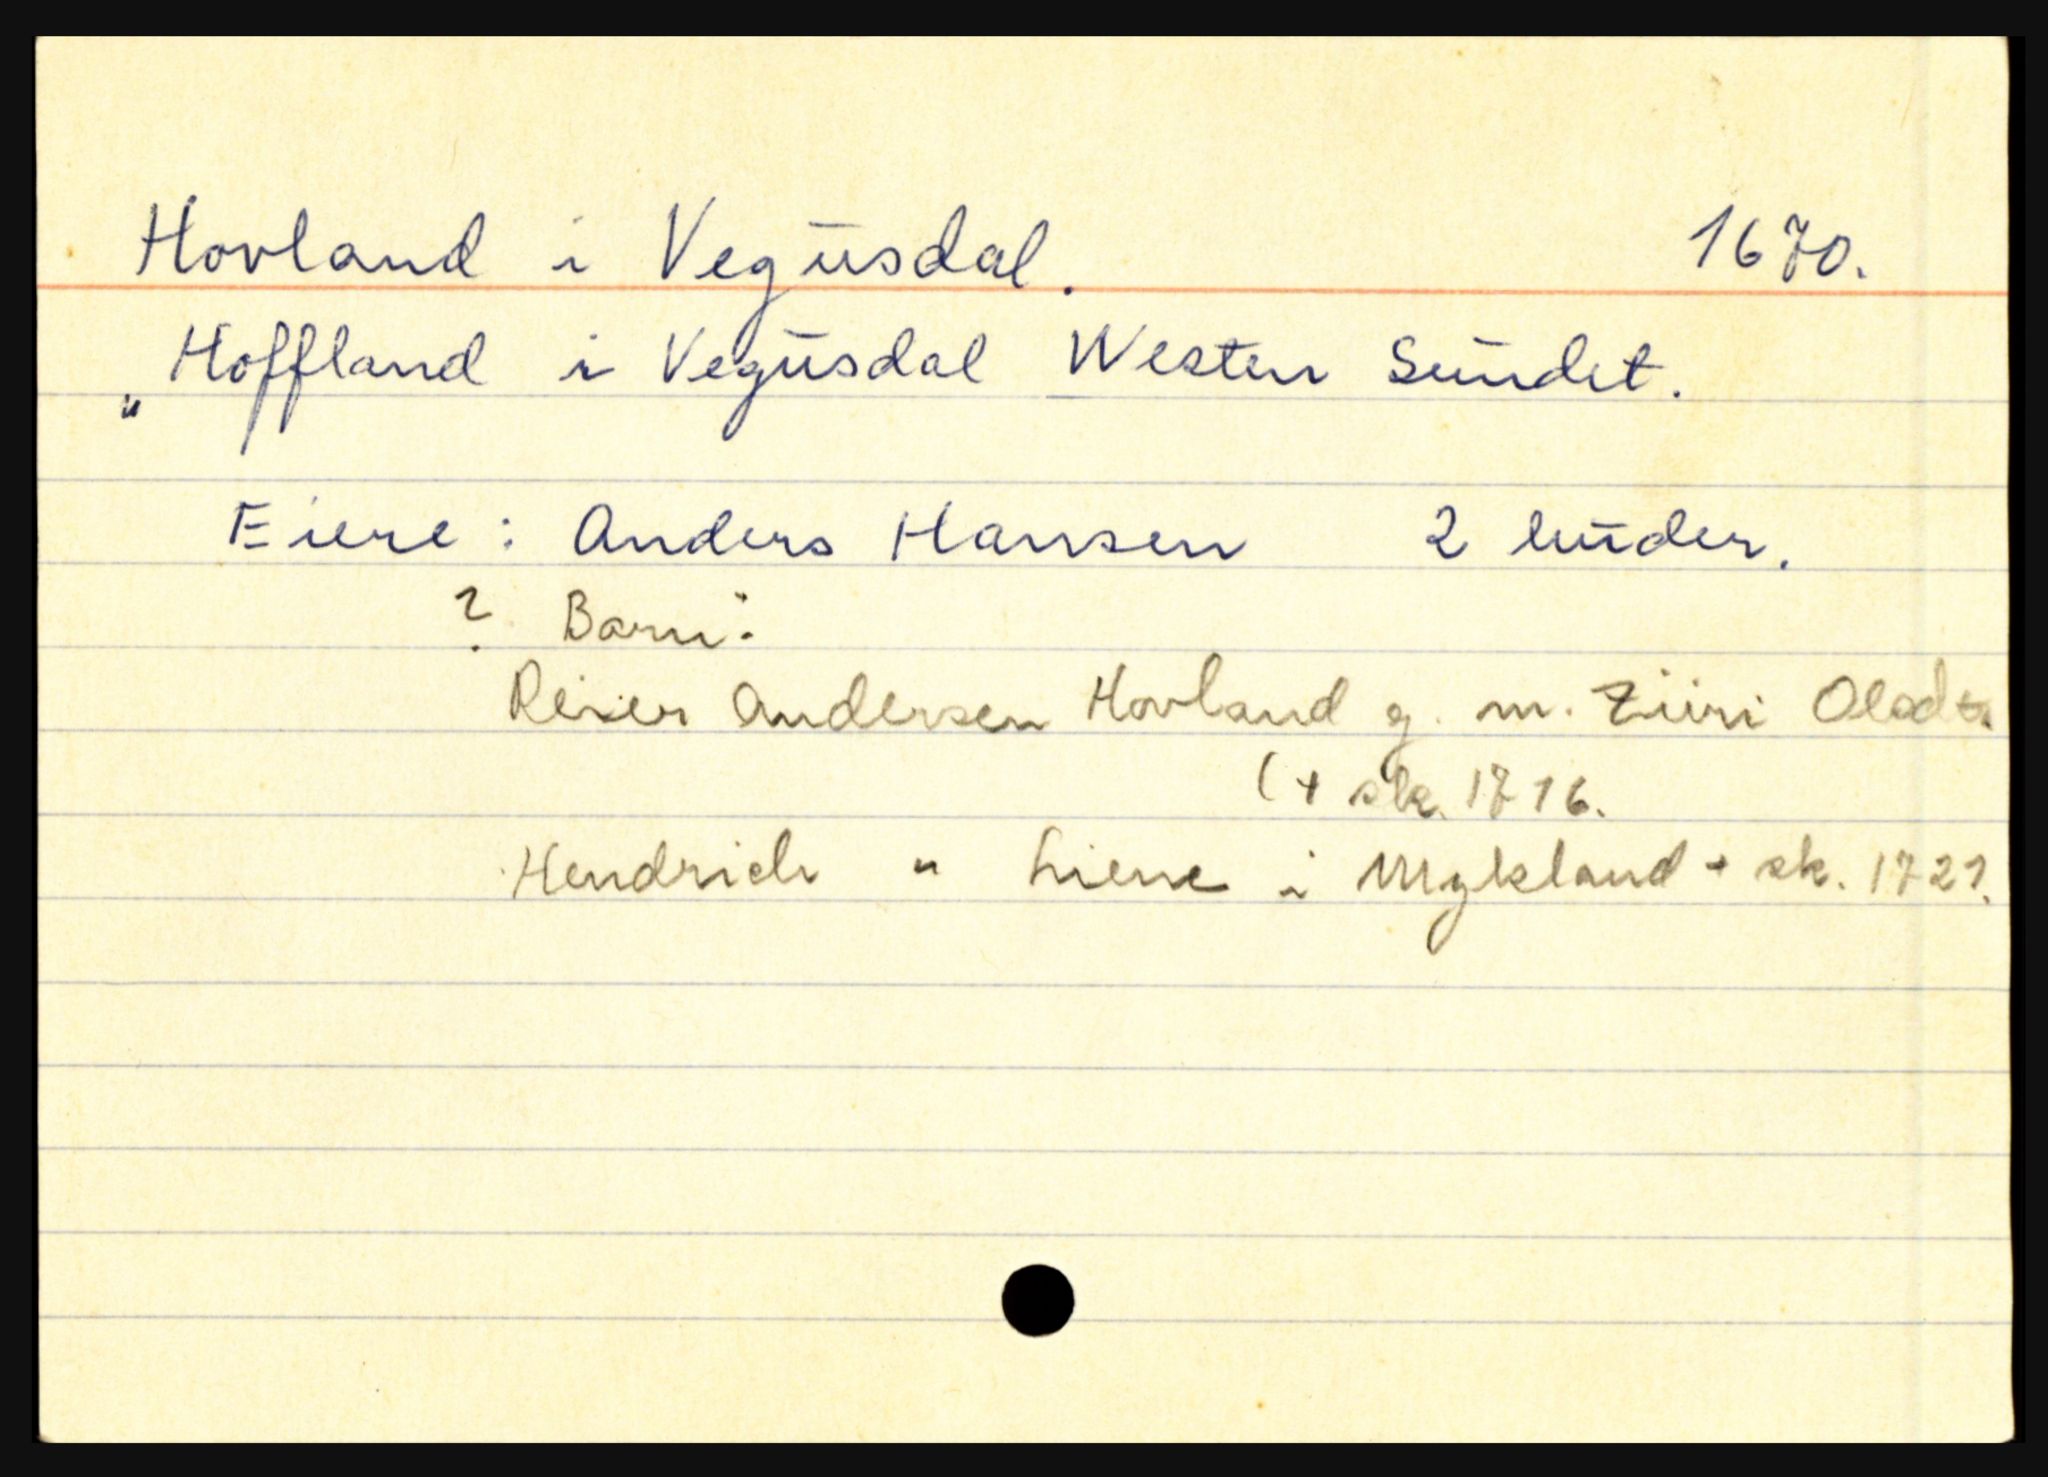 Hovland i Vegusdal. 1670.
„Hoffland i Vegusdal Westen Sundet.
Eiere: Anders Hansen 2 huder.
? Barn:
Reier Andersen Hovland g. m. Ziuri Olsdtr.
(+ sk. 1716.
Hendrich " Liene i Mykland + sk. 1721.